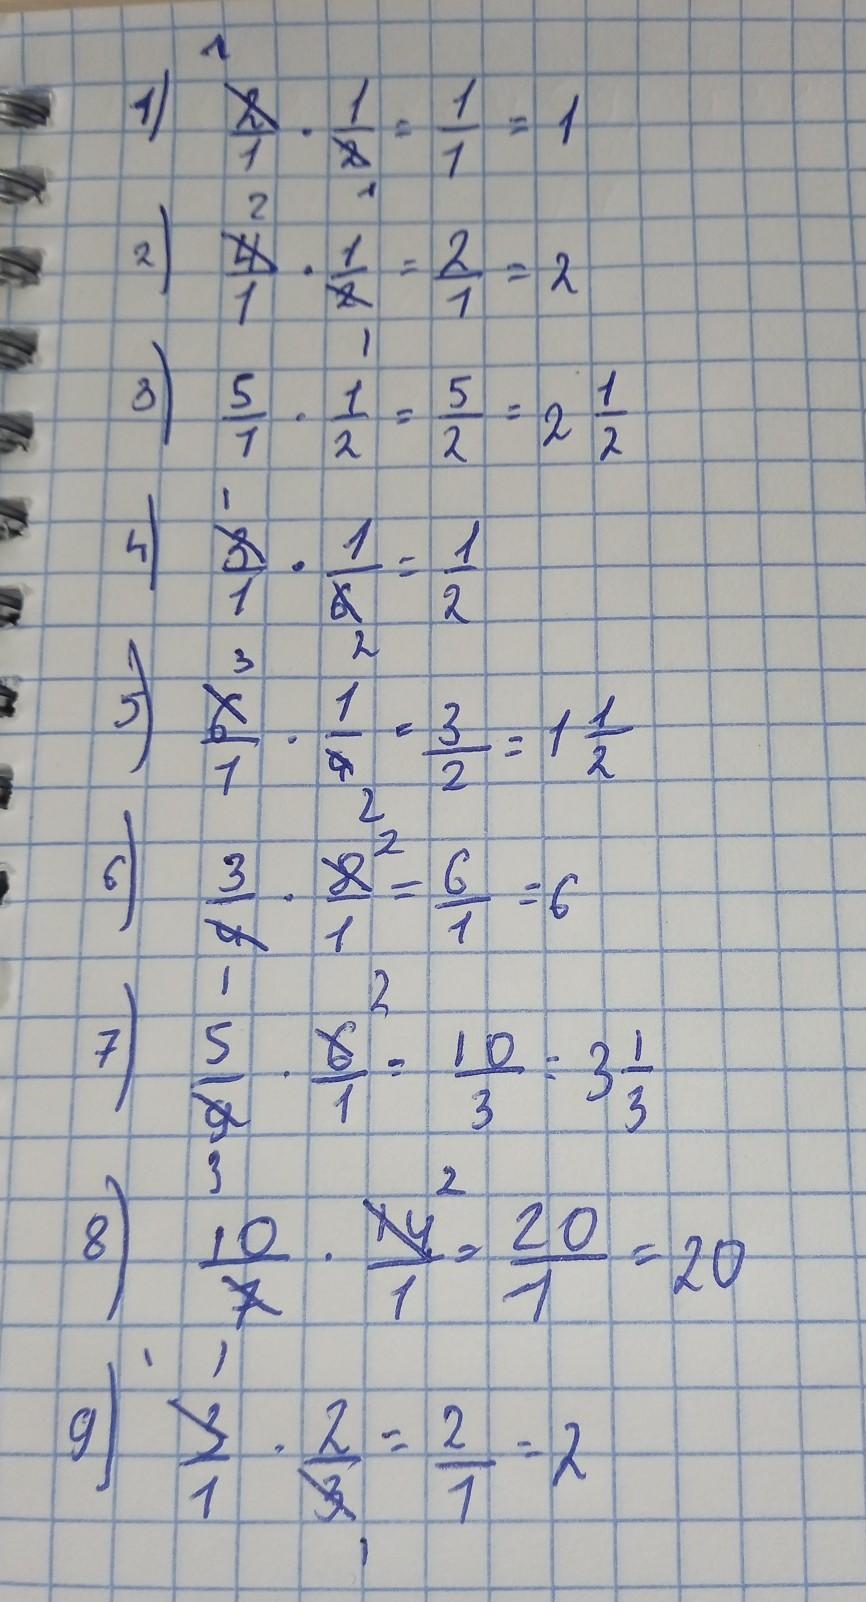 1) 2/1 · 1/2 = 1/1 = 1
2) 4/1 · 1/2 = 2/1 = 2
3) 5/1 · 1/2 = 5/2 = 2 1/2
4) 3/1 · 1/6 = 1/2
5) 6/1 · 1/4 = 3/2 = 1 1/2
6) 3/4 · 8/1 = 6/1 = 6
7) 5/9 · 6/1 = 10/3 = 3 1/3
8) 10/7 · 14/1 = 20/1 = 20
9) 3/1 · 2/3 = 2/1 = 2